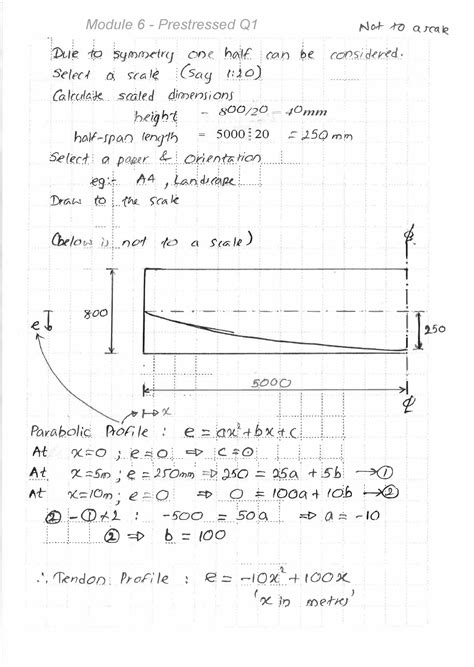 Module 6 - Prestressed Q1
Not to a scale
Due to symmetry one half can be considered.
Select a scale (Say 1:20)
Calculate scaled dimensions
height = 800/20 = 40mm
half-span length = 5000:20 = 250 mm
Select a paper & Orientation
eg:- A4, Landscape
Draw to the scale
(below is not to a scale)
800
e
250
5000
x
Parabolic Profile : e = ax²+bx+c
At x=0 ; e=0 ⇒ c=0
At x=5m ; e=250mm ⇒ 250 = 25a + 5b → ①
At x=10m ; e=0 ⇒ 0 = 100a + 10b → ②
② - ①×2 : -500 = 50a ⇒ a = -10
② ⇒ b = 100
∴ Tendon Profile : e = -10x² + 100x
'x in metres'